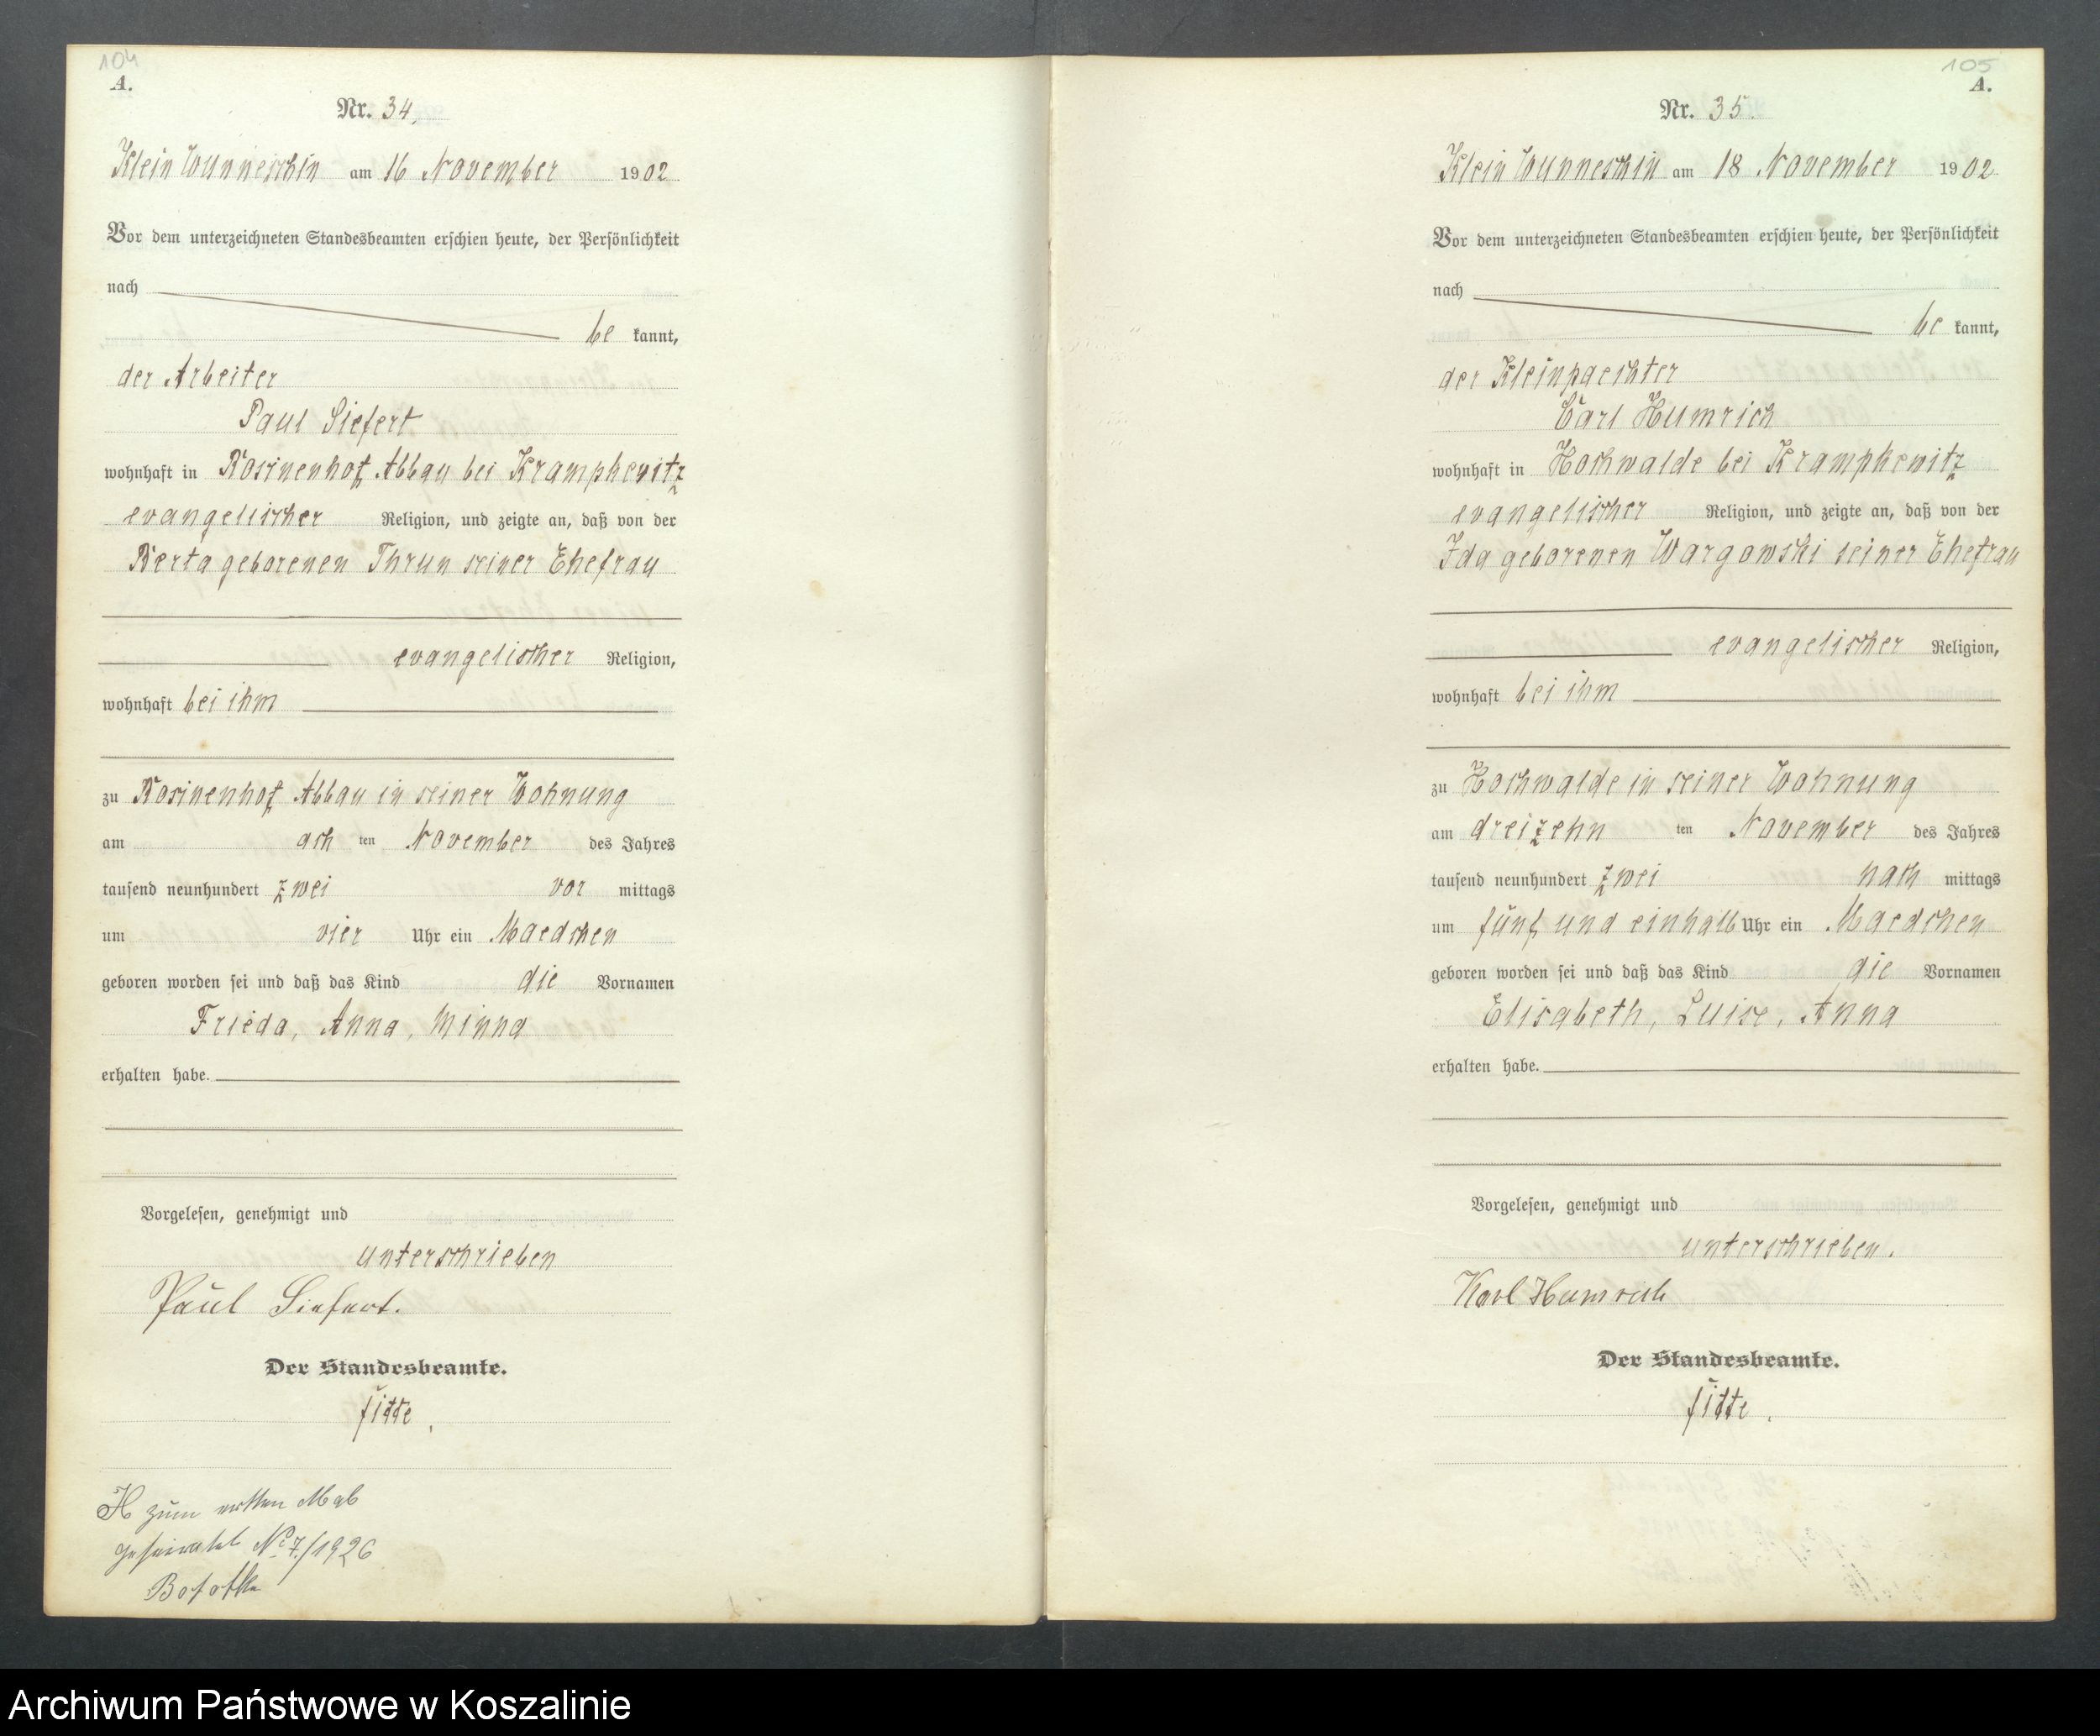 104
A.
Nr. 34.
Klein Wunneschin am 16 November 1902
Vor dem unterzeichneten Standesbeamten erschien heute, der Persönlichkeit
nach
be kannt,
der Arbeiter
Paul Siefert
wohnhaft in Rosinenhof Abbau bei Kramphewitz
evangelischer Religion, und zeigte an, daß von der
Berta geborenen Thrun seiner Ehefrau
evangelischer Religion,
wohnhaft bei ihm
zu Rosinenhof Abbau in seiner Wohnung
am ach ten November des Jahres
tausend neunhundert zwei vor mittags
um vier Uhr ein Maedchen
geboren worden sei und daß das Kind die Vornamen
Frieda, Anna, Minna
erhalten habe.
Vorgelesen, genehmigt und
unterschrieben
Paul Siefert.
Der Standesbeamte.
H zum ersten Mal
geheiratet No 7/1926
105
A.
Nr. 35.
Klein Wunneschin am 18 November 1902
Vor dem unterzeichneten Standesbeamten erschien heute, der Persönlichkeit
nach
be kannt,
der Kleinpaechter
Carl Humrich
wohnhaft in Hochwalde bei Kramphewitz
evangelischer Religion, und zeigte an, daß von der
Ida geborenen Wargowski seiner Ehefrau
evangelischer Religion,
wohnhaft bei ihm
zu Hochwalde in seiner Wohnung
am dreizehn ten November des Jahres
tausend neunhundert zwei nach mittags
um fünf und einhalb Uhr ein Maedchen
geboren worden sei und daß das Kind die Vornamen
Elisabeth, Luise, Anna
erhalten habe.
Vorgelesen, genehmigt und
unterschrieben.
Karl Humrich
Der Standesbeamte.
Archiwum Państwowe w Koszalinie